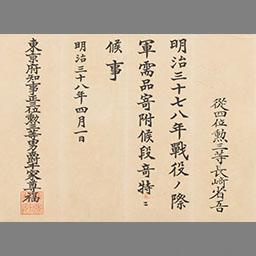 從四位勲三等長崎省吾
明治三十七八年戦役ノ際
軍需品寄附候段奇特ニ
候事
明治三十八年四月一日
東京府知事正三位勲三等男爵千家尊福